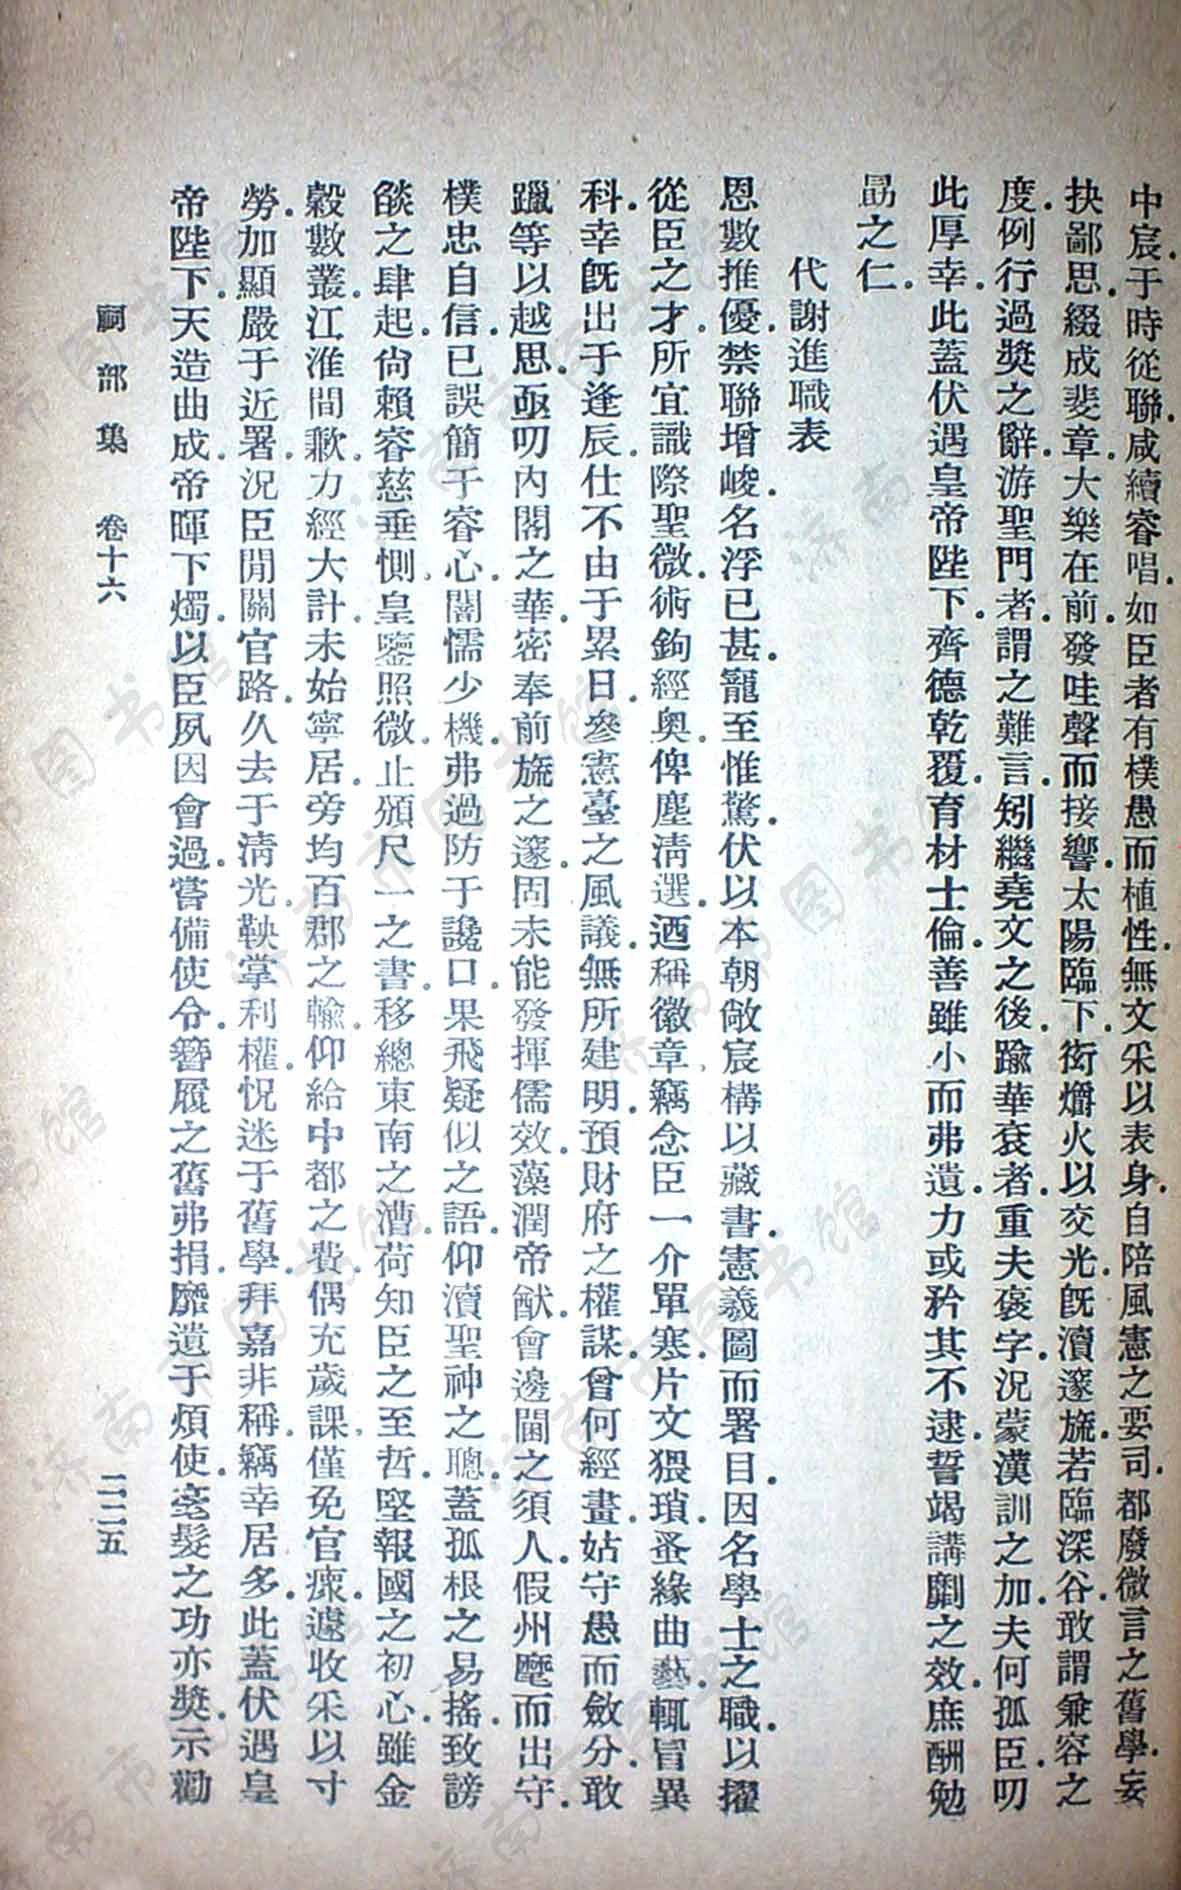 中宸于時從聯咸續睿唱如臣者有樸愚而植性無文采以表身自陪風憲之要司都廢微言之舊學妄
抉鄙思綴成斐章大樂在前發哇聲而接響太陽臨下衒爝火以交光旣瀆邃旒若臨深谷敢謂兼容之
度例行過獎之辭游聖門者謂之難言矧繼堯文之後踰華袞者重夫褒字況蒙漢訓之加夫何孤臣叨
此厚幸此蓋伏遇皇帝陛下齊德乾覆育材士倫善雖小而弗遺力或矜其不逮誓竭講劘之效庶酬勉
勗之仁
代謝進職表
恩數推優禁聯增峻名浮已甚寵至惟驚伏以本朝敞宸構以藏書憲羲圖而署目因名學士之職以擢
從臣之才所宜識際聖微術鉤經奧俾塵清選迺稱徽章竊念臣一介單寒片文猥瑣蚤緣曲藝輒冒異
科幸旣出于逢辰仕不由于累日參憲臺之風議無所建明預財府之權謀曾何經畫姑守愚而斂分敢
躐等以越思亟叨內閣之華密奉前旒之邃固未能發揮儒效藻潤帝猷會邊閫之須人假州麾而出守
樸忠自信已誤簡于睿心闇懦少機弗過防于讒口果飛疑似之語仰瀆聖神之聰蓋孤根之易搖致謗
燄之肆起尙賴睿慈垂惻皇鑒照微止頒尺一之書移總東南之漕荷知臣之至哲堅報國之初心雖金
穀數叢江淮間歉力經大計未始寧居旁均百郡之輸仰給中都之費偶充歲課僅免官瘝遽收采以寸
勞加顯嚴于近署況臣閒關官路久去于清光鞅掌利權怳迷于舊學拜嘉非稱竊幸居多此蓋伏遇皇
帝陛下天造曲成帝暉下燭以臣夙因會過嘗備使令簪履之舊弗捐靡遺于煩使毫髮之功亦獎示勸
嗣部集　卷十六　二二五